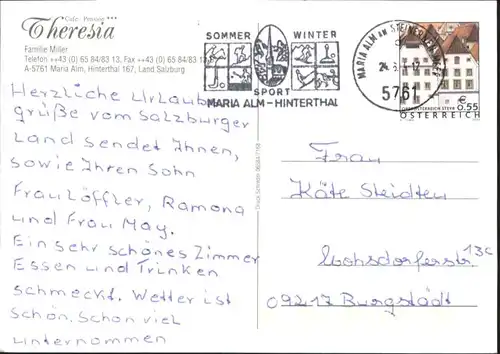 Café - Pension ***
Theresia
Familie Miller
Telefon ++43 (0) 65 84/83 13, Fax ++43 (0) 65 84/83 13
A-5761 Maria Alm, Hinterthal 167, Land Salzburg
SOMMER WINTER
SPORT
MARIA ALM - HINTERTHAL
MARIA ALM AM STEINERNEN MEER
5761
€ 0,55
ÖSTERREICH
Herzliche Urlaubs
grüße vom Salzburger
Land sendet Ihnen,
sowie Ihren Sohn
Frau Löffler, Ramona
und Frau May.
Ein sehr schönes Zimmer
Essen und Trinken
schmeckt. Wetter ist
schön. Schon viel
unternommen
Frau
Käte Steidten
13c
09217 Burgstädt